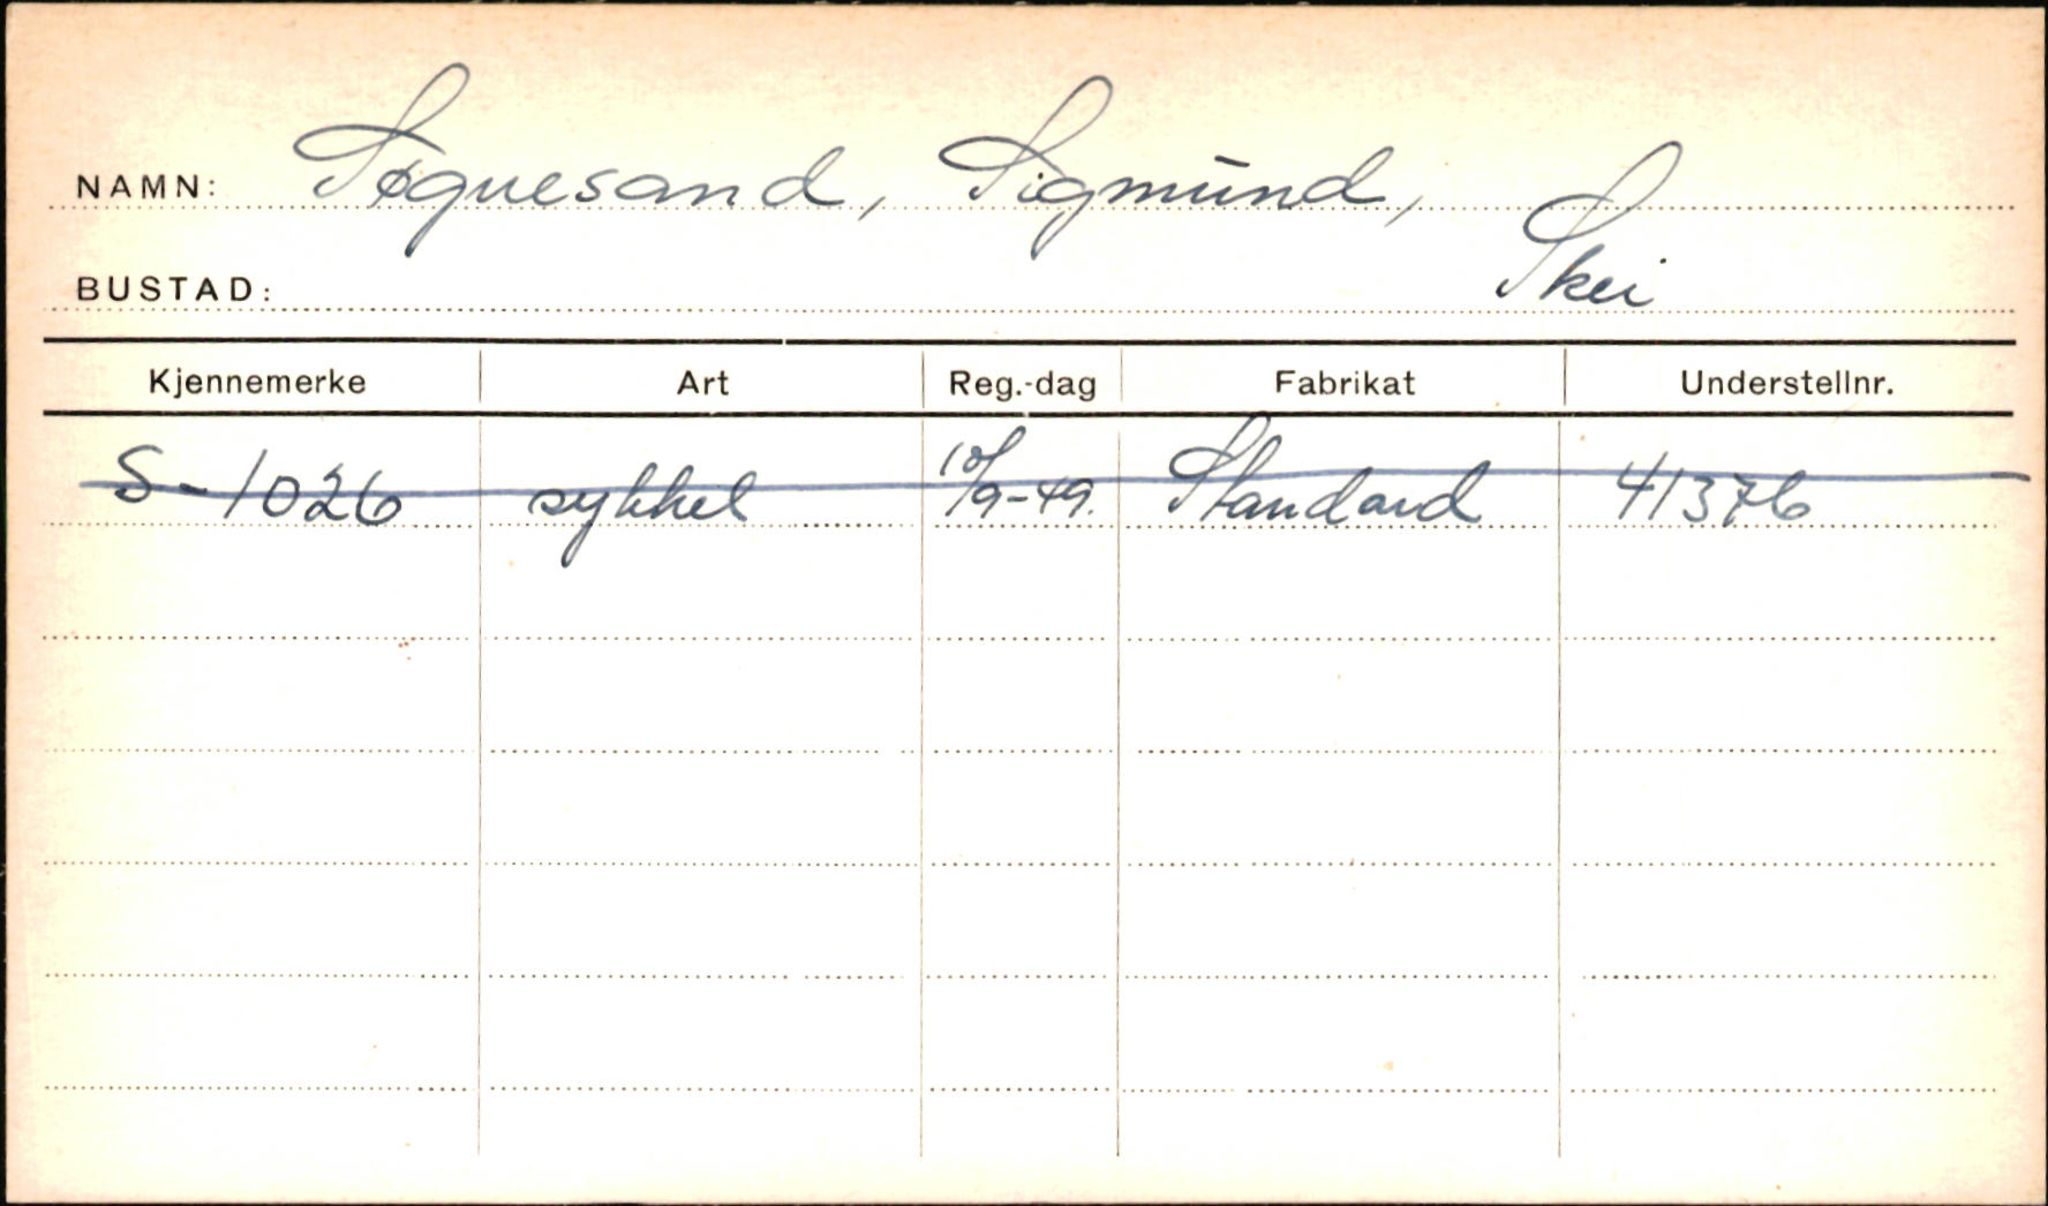 NAMN: Søgnesand, Sigmund,
BUSTAD: Skei
Kjennemerke Art Reg.-dag Fabrikat Understellnr.
S-1026 sykkel 10/9-49. Standard 41376